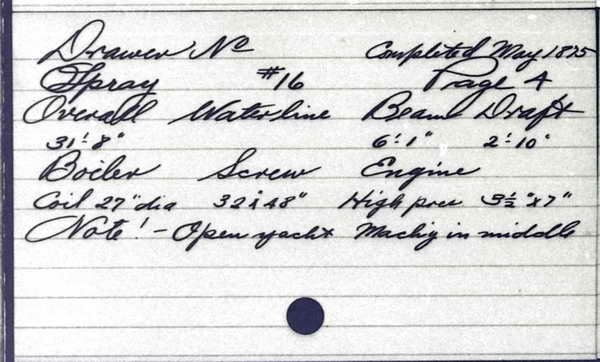 Drawer No Completed May 1875
Spray #16 Page 4
Overall Waterline Beam Draft
31'-8" 6'-1" 2'-10"
Boiler Screw Engine
Coil 27" dia 32 x 48" High pres 3½" x 7"
Note! - Open yacht Machy in middle